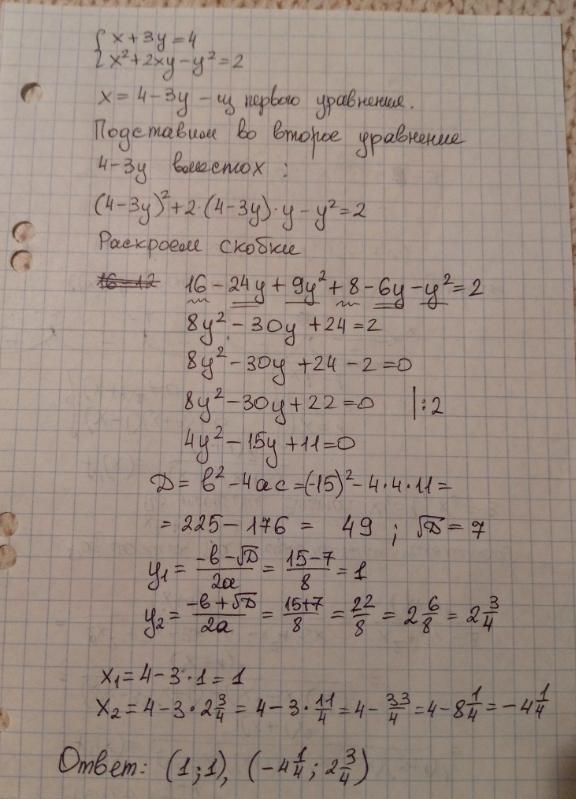 { x + 3y = 4
{ x² + 2xy − y² = 2
x = 4 − 3y – из первого уравнения.
Подставим во второе уравнение
4 − 3y вместо x :
(4 − 3y)² + 2·(4 − 3y)·y − y² = 2
Раскроем скобки
16 − 12 16 − 24y + 9y² + 8 − 6y − y² = 2
8y² − 30y + 24 = 2
8y² − 30y + 24 − 2 = 0
8y² − 30y + 22 = 0 | : 2
4y² − 15y + 11 = 0
D = b² − 4ac = (−15)² − 4·4·11 =
= 225 − 176 = 49 ; √D = 7
y₁ = (−b − √D)/2a = (15 − 7)/8 = 1
y₂ = (−b + √D)/2a = (15 + 7)/8 = 22/8 = 2 6/8 = 2 3/4
x₁ = 4 − 3·1 = 1
x₂ = 4 − 3·2 3/4 = 4 − 3·11/4 = 4 − 33/4 = 4 − 8 1/4 = −4 1/4
Ответ: (1 ; 1), (−4 1/4 ; 2 3/4)